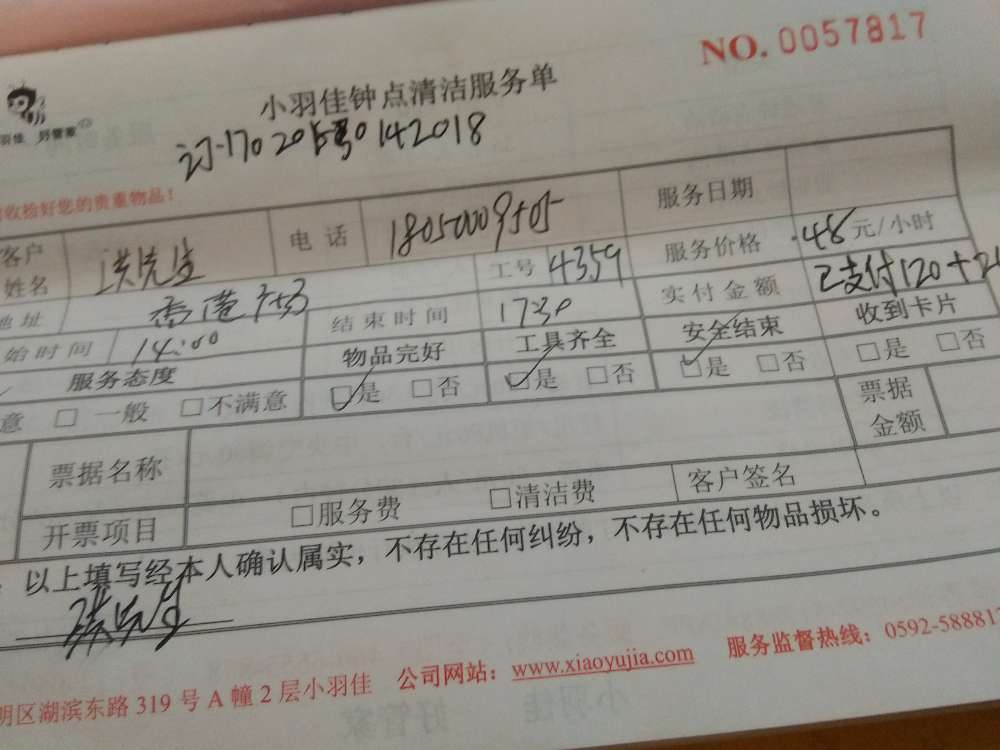 NO. 0057817
羽佳 好管家
小羽佳钟点清洁服务单
收拾好您的贵重物品！
客户姓名 洪先生 电话 服务日期
地址 工号 4359 服务价格 48 元/小时
始时间 14:00 结束时间 1730 实付金额 已支付120+2
服务态度 物品完好 工具齐全 安全结束 收到卡片
意 □ 一般 □不满意 □是 □否 □是 □否 □是 □否 □是 □否
票据名称 票据金额
开票项目 □服务费 □清洁费 客户签名
以上填写经本人确认属实，不存在任何纠纷，不存在任何物品损坏。
洪先生
明区湖滨东路 319 号 A 幢 2 层小羽佳 公司网站：www.xiaoyujia.com 服务监督热线：0592-58881